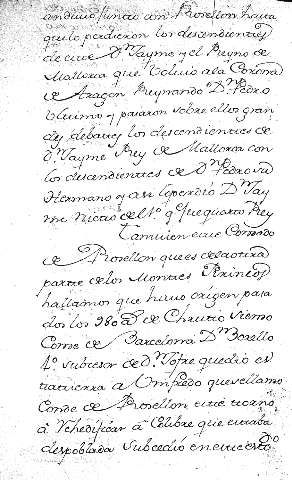 anduvo junto con Rosellon hasta
que lo perdieron los descendientes
de este Dn Jayme y el Reyno de
Mallorca que volvio a la Corona
de Aragon Reynando Dn Pedro
Ultimo y pasaron sobre ellos gran
des debates los descendientes de
Dn Jayme Rey de Mallorca con
los descendientes de Dn Pedro su
Hermano y asi lo perdió Dn Jay
me Nieto del 1o qe fue quarto Rey
Tamvien este Condado
de Rosellon que es de la otra
parte de los Montes Pirineos
hallamos que huvo origen pasa
dos los 980 de Christo siendo
Conde de Barcelona Dn Borello
4o subcesor de Dn Jofre que dio es
ta tierra a Umfredo que se llamo
Conde de Rosellon este torno
à Rehedificar à Colibre que estaba
despoblada Subcedió en este